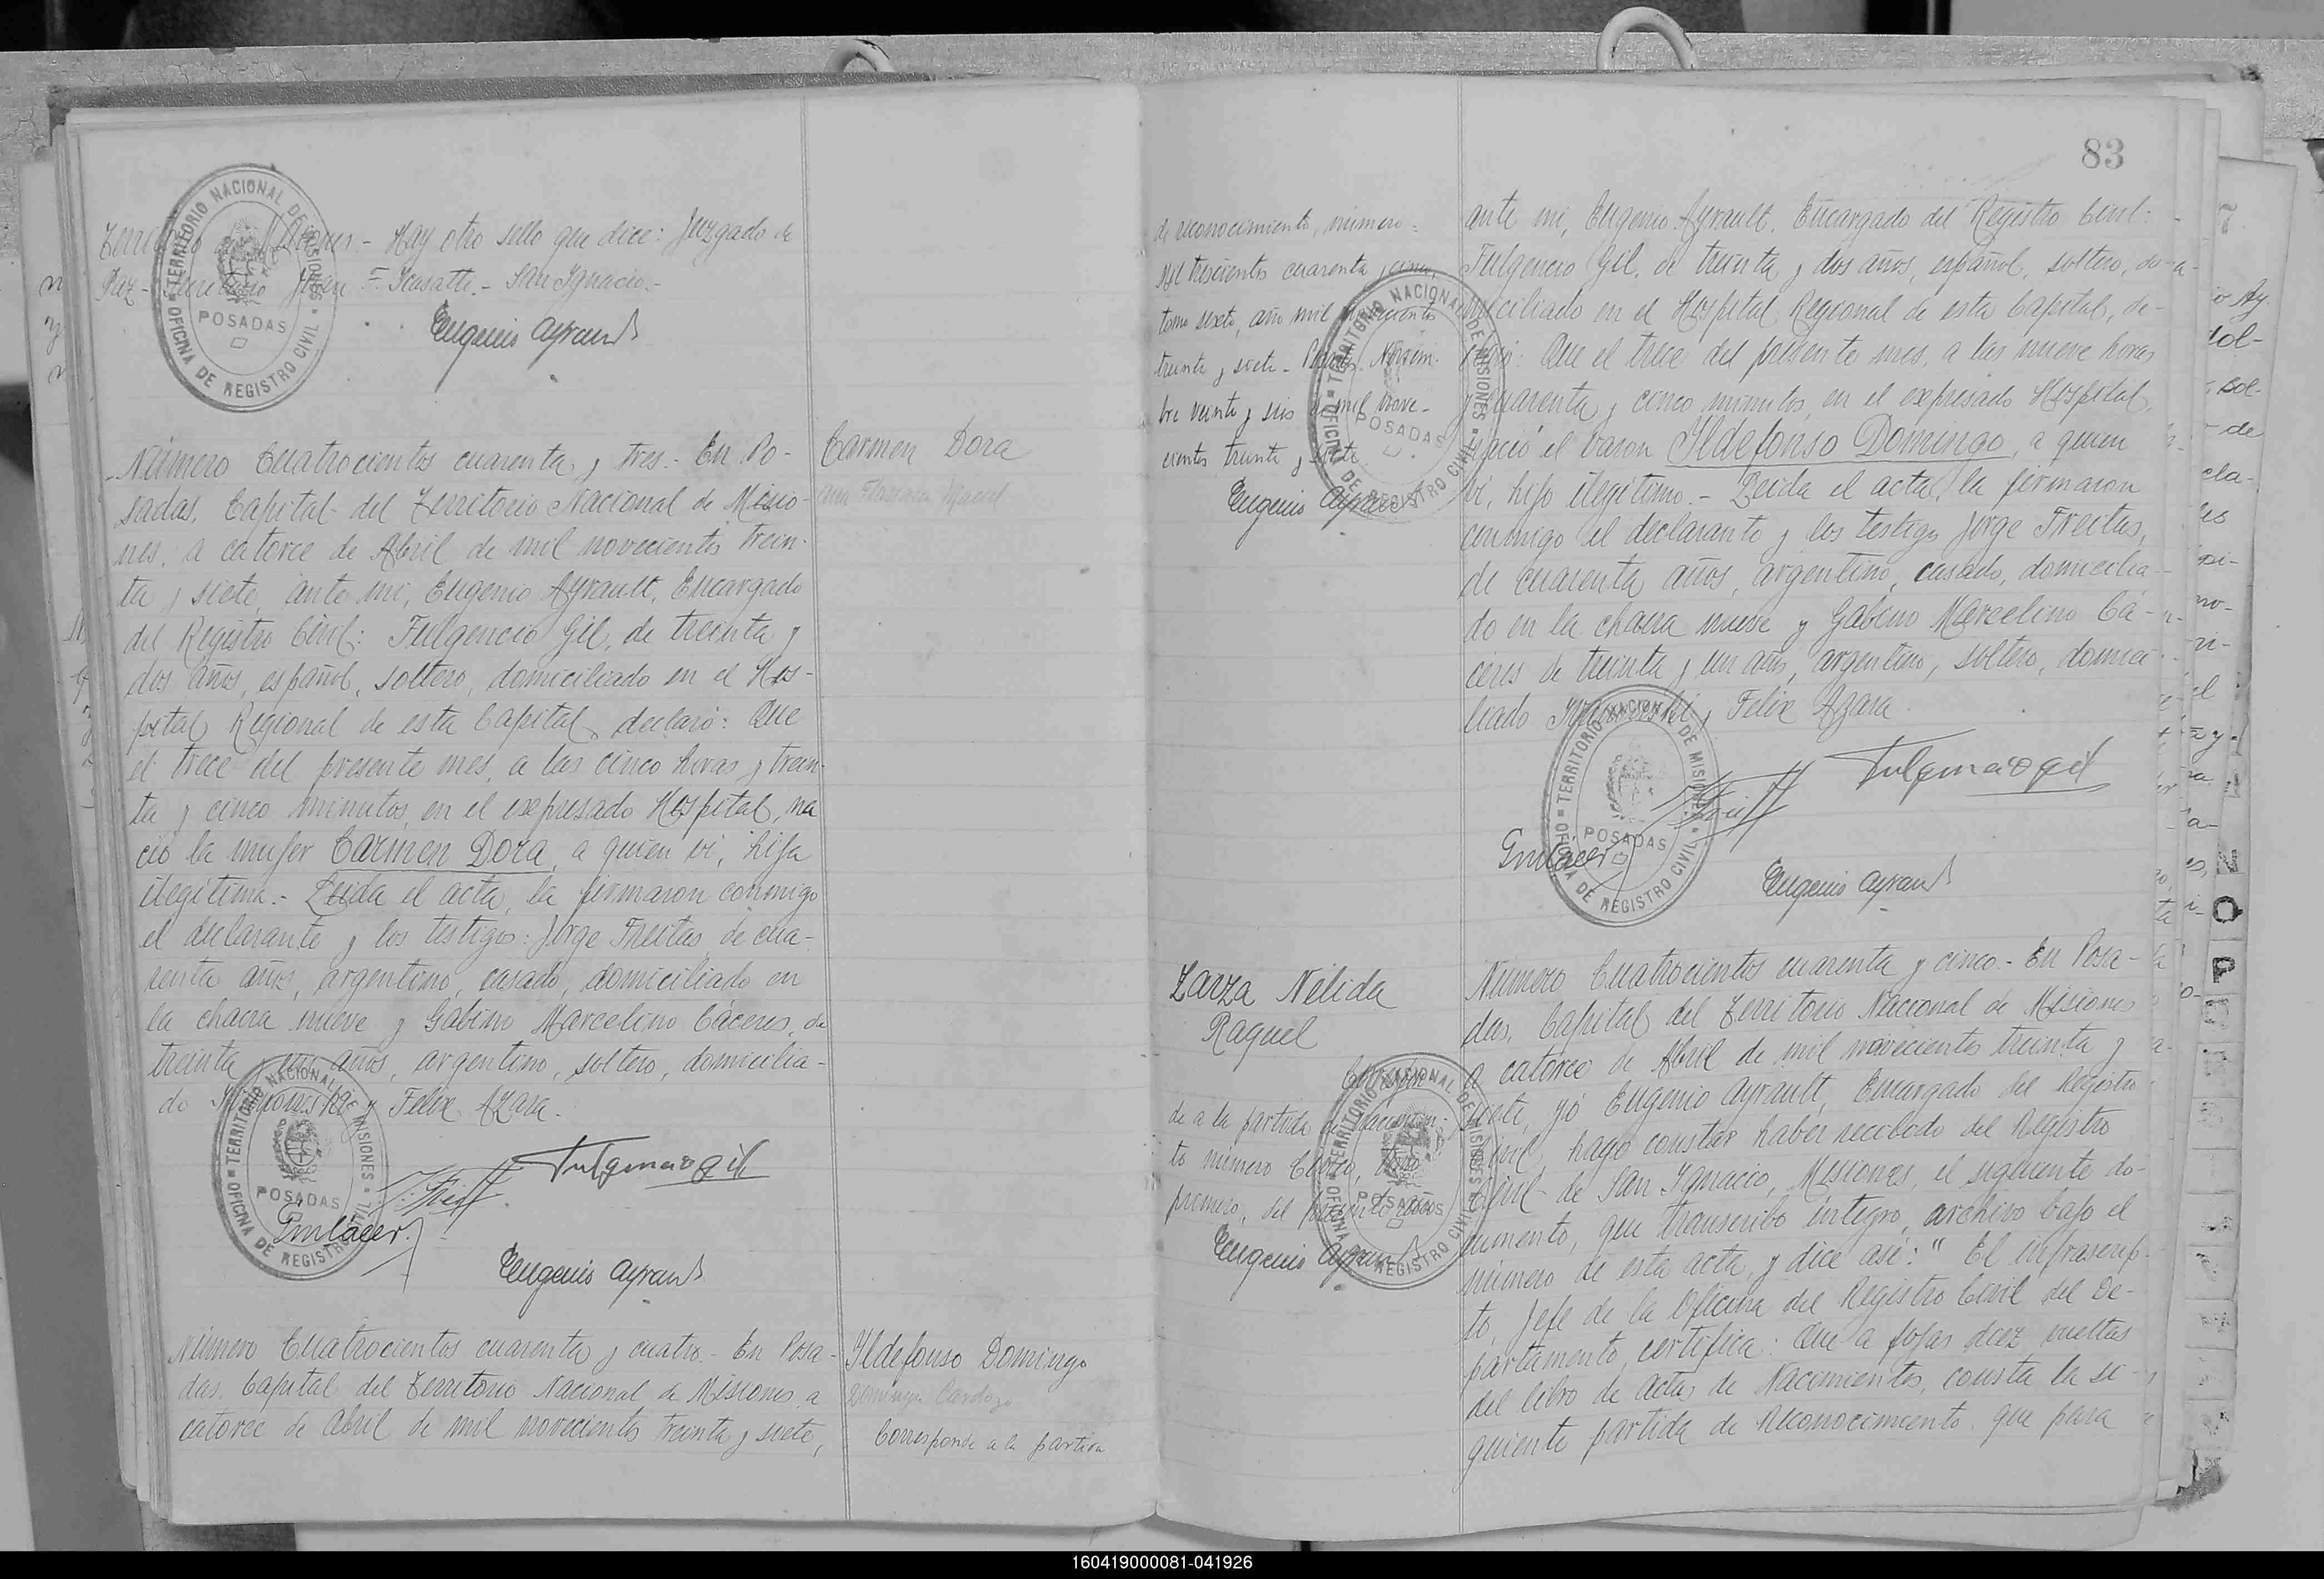 Hay otro sello que dice: Juzgado de
Paz - Secretario Juan F. - San Ignacio.-
TERRITORIO NACIONAL DE MISIONES
POSADAS
OFICINA DE REGISTRO CIVIL
Eugenio Ayrault
Número Cuatrocientos cuarenta y tres.- En Po-
sadas, Capital del Territorio Nacional de Misio-
nes, a catorce de Abril de mil novecientos trein-
ta y siete, ante mi, Eugenio Ayrault, Encargado
del Registro Civil: Fulgencio Gil, de treinta y
dos años, español, soltero, domiciliado en el Hos-
pital Regional de esta Capital, declaró: Que
el trece del presente mes, a las cinco horas y trein-
ta y cinco minutos, en el expresado Hospital, na
ció la mujer Carmen Dora, a quien vi, hija
ilegítima.- Leida el acta, la firmaron conmigo
el declarante y los testigos: Jorge Freitas, de cua-
renta años, argentino, casado, domiciliado en
la chacra nueve y Gabino Marcelino Cáceres, de
treinta y un años, argentino, soltero, domicilia-
do y Felix Azara.-
TERRITORIO NACIONAL DE MISIONES
POSADAS
OFICINA DE REGISTRO CIVIL
Fulgencio Gil
J. Freitas
GMCácer
Eugenio Ayrault
Número Cuatrocientos cuarenta y cuatro.- En Posa-
das, Capital del Territorio Nacional de Misiones, a
catorce de Abril de mil novecientos treinta y siete,
Carmen Dora
Ildefonso Domingo
Cardozo
Corresponde a la partida
83
de reconocimiento, número
trescientos cuarenta y cinco,
tomo sexto, año mil novecientos
treinta y siete.- Posadas, Noviem-
bre veinte y seis de mil nove-
cientos treinta y siete
TERRITORIO NACIONAL DE MISIONES
POSADAS
OFICINA DE REGISTRO CIVIL
Eugenio Ayrault
ante mi, Eugenio Ayrault, Encargado del Registro Civil:
Fulgencio Gil, de treinta y dos años, español, soltero, do-
miciliado en el Hospital Regional de esta Capital, de-
claró: Que el trece del presente mes, a las nueve horas
y cuarenta y cinco minutos, en el expresado Hospital,
nació el varon Ildefonso Domingo, a quien
vi, hijo ilegítimo.- Leida el acta, la firmaron
conmigo el declarante y los testigos Jorge Freitas,
de cuarenta años, argentino, casado, domicilia-
do en la chacra nueve y Gabino Marcelino Cá-
ceres de treinta y un años, argentino, soltero, domici
liado y Felix Azara.
TERRITORIO NACIONAL DE MISIONES
POSADAS
OFICINA DE REGISTRO CIVIL
Fulgencio Gil
J. Freitas
GMCácer
Eugenio Ayrault
Zarza Nélida
Raquel
Correspon-
de a la partida de nacimien-
to número tomo
primero, del presente año
TERRITORIO NACIONAL DE MISIONES
POSADAS
OFICINA DE REGISTRO CIVIL
Eugenio Ayrault
Número Cuatrocientos cuarenta y cinco.- En Posa-
das, Capital del Territorio Nacional de Misiones
a catorce de Abril de mil novecientos treinta y
siete, yó Eugenio Ayrault, Encargado del Registro
Civil, hago constar haber recibido del Registro
Civil de San Ignacio, Misiones, el siguiente do-
cumento, que transcribo integro, archivo bajo el
número de esta acta, y dice asi: " El infrascrip-
to, Jefe de la Oficina del Registro Civil del De-
partamento, certifica: Que a fojas diez vueltas
del libro de actas de Nacimientos, consta la si-
guiente partida de Reconocimiento, que para
N
O
P
160419000081-041926